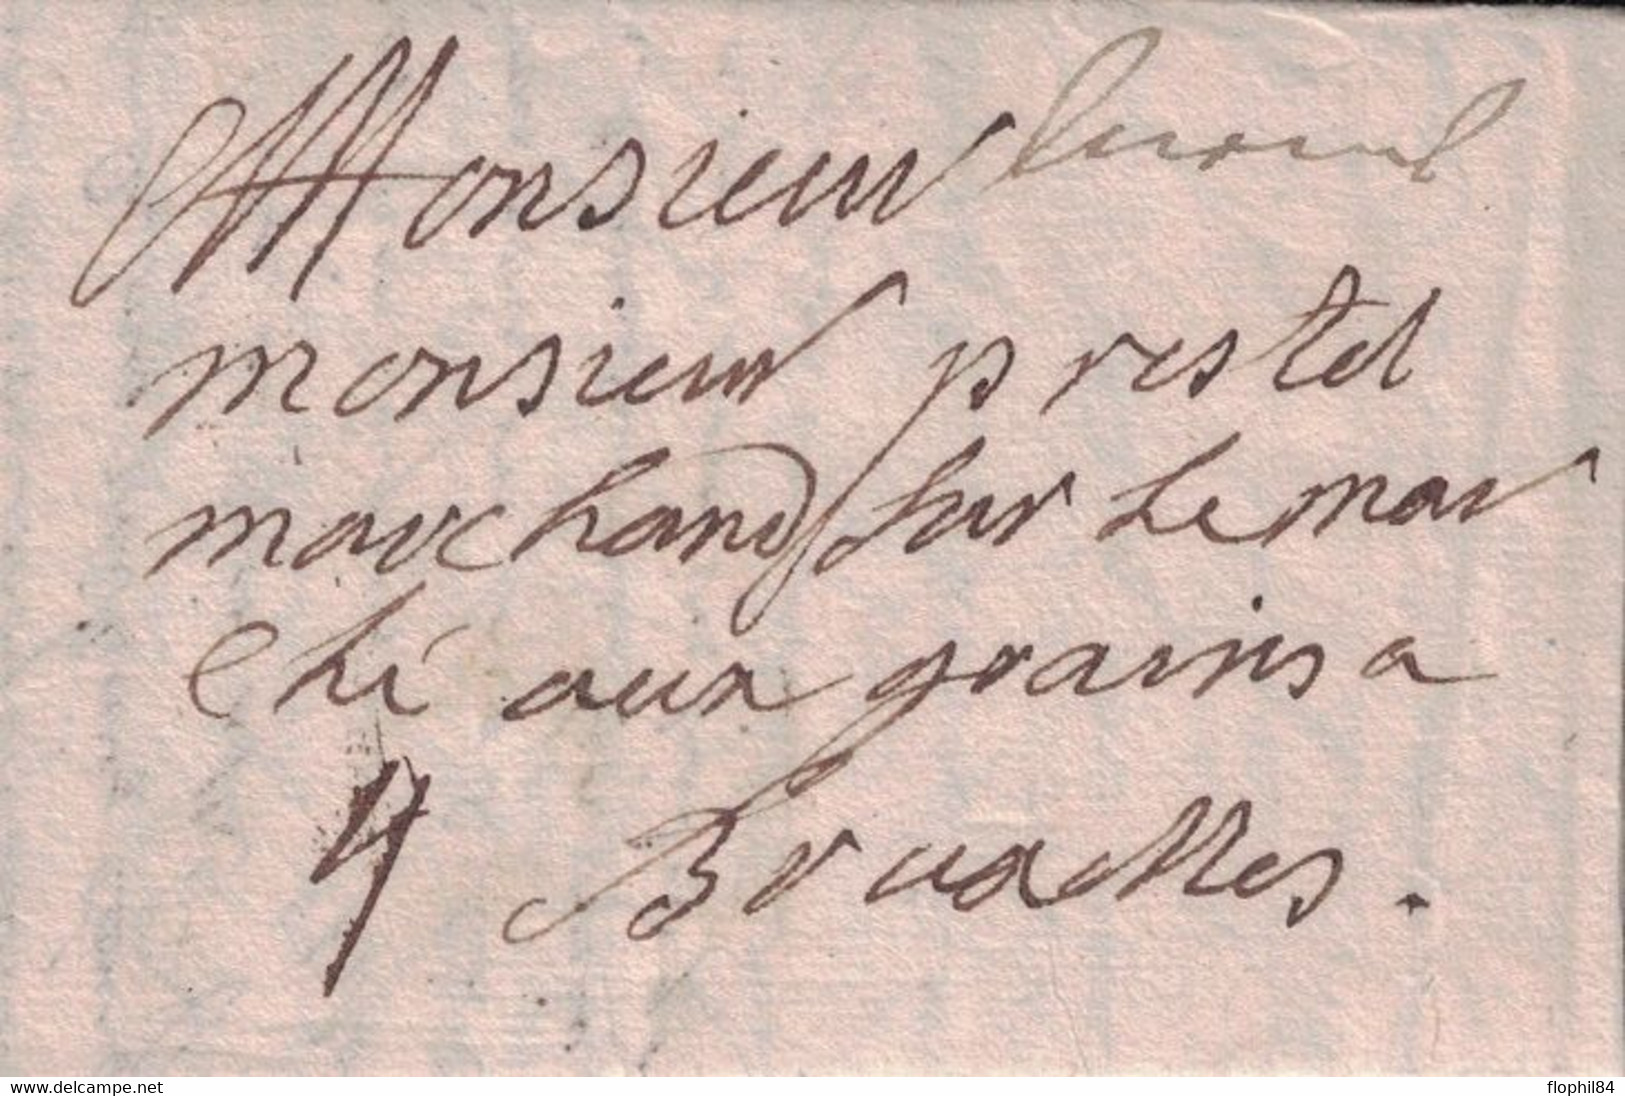 Monsieur
monsieur prestel
marchand sur Le mar
ché aux grains a
4 Bruxelles.
www.delcampe.net flophil84